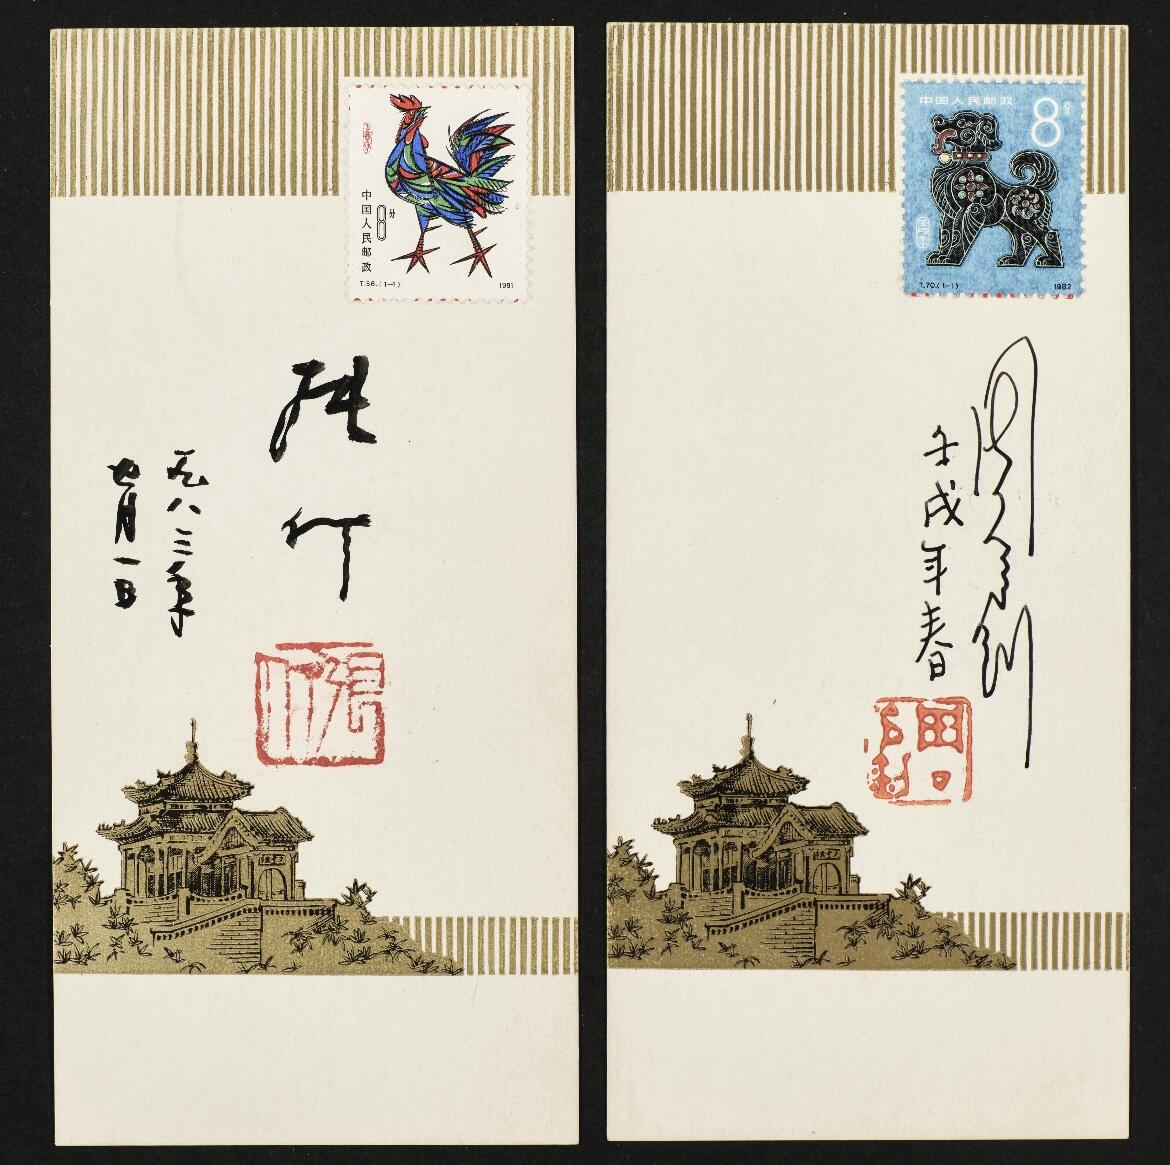 中国人民邮政
8分
T.56.(1-1)
1981
张仃
一九八二年
七月一日
张仃
中国人民邮政
8分
T.70.(1-1)
1982
周令钊
壬戌年春
周令钊